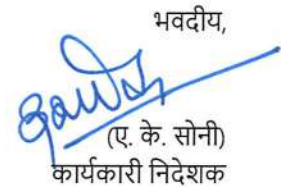 भवदीय,
(ए. के. सोनी)
कार्यकारी निदेशक